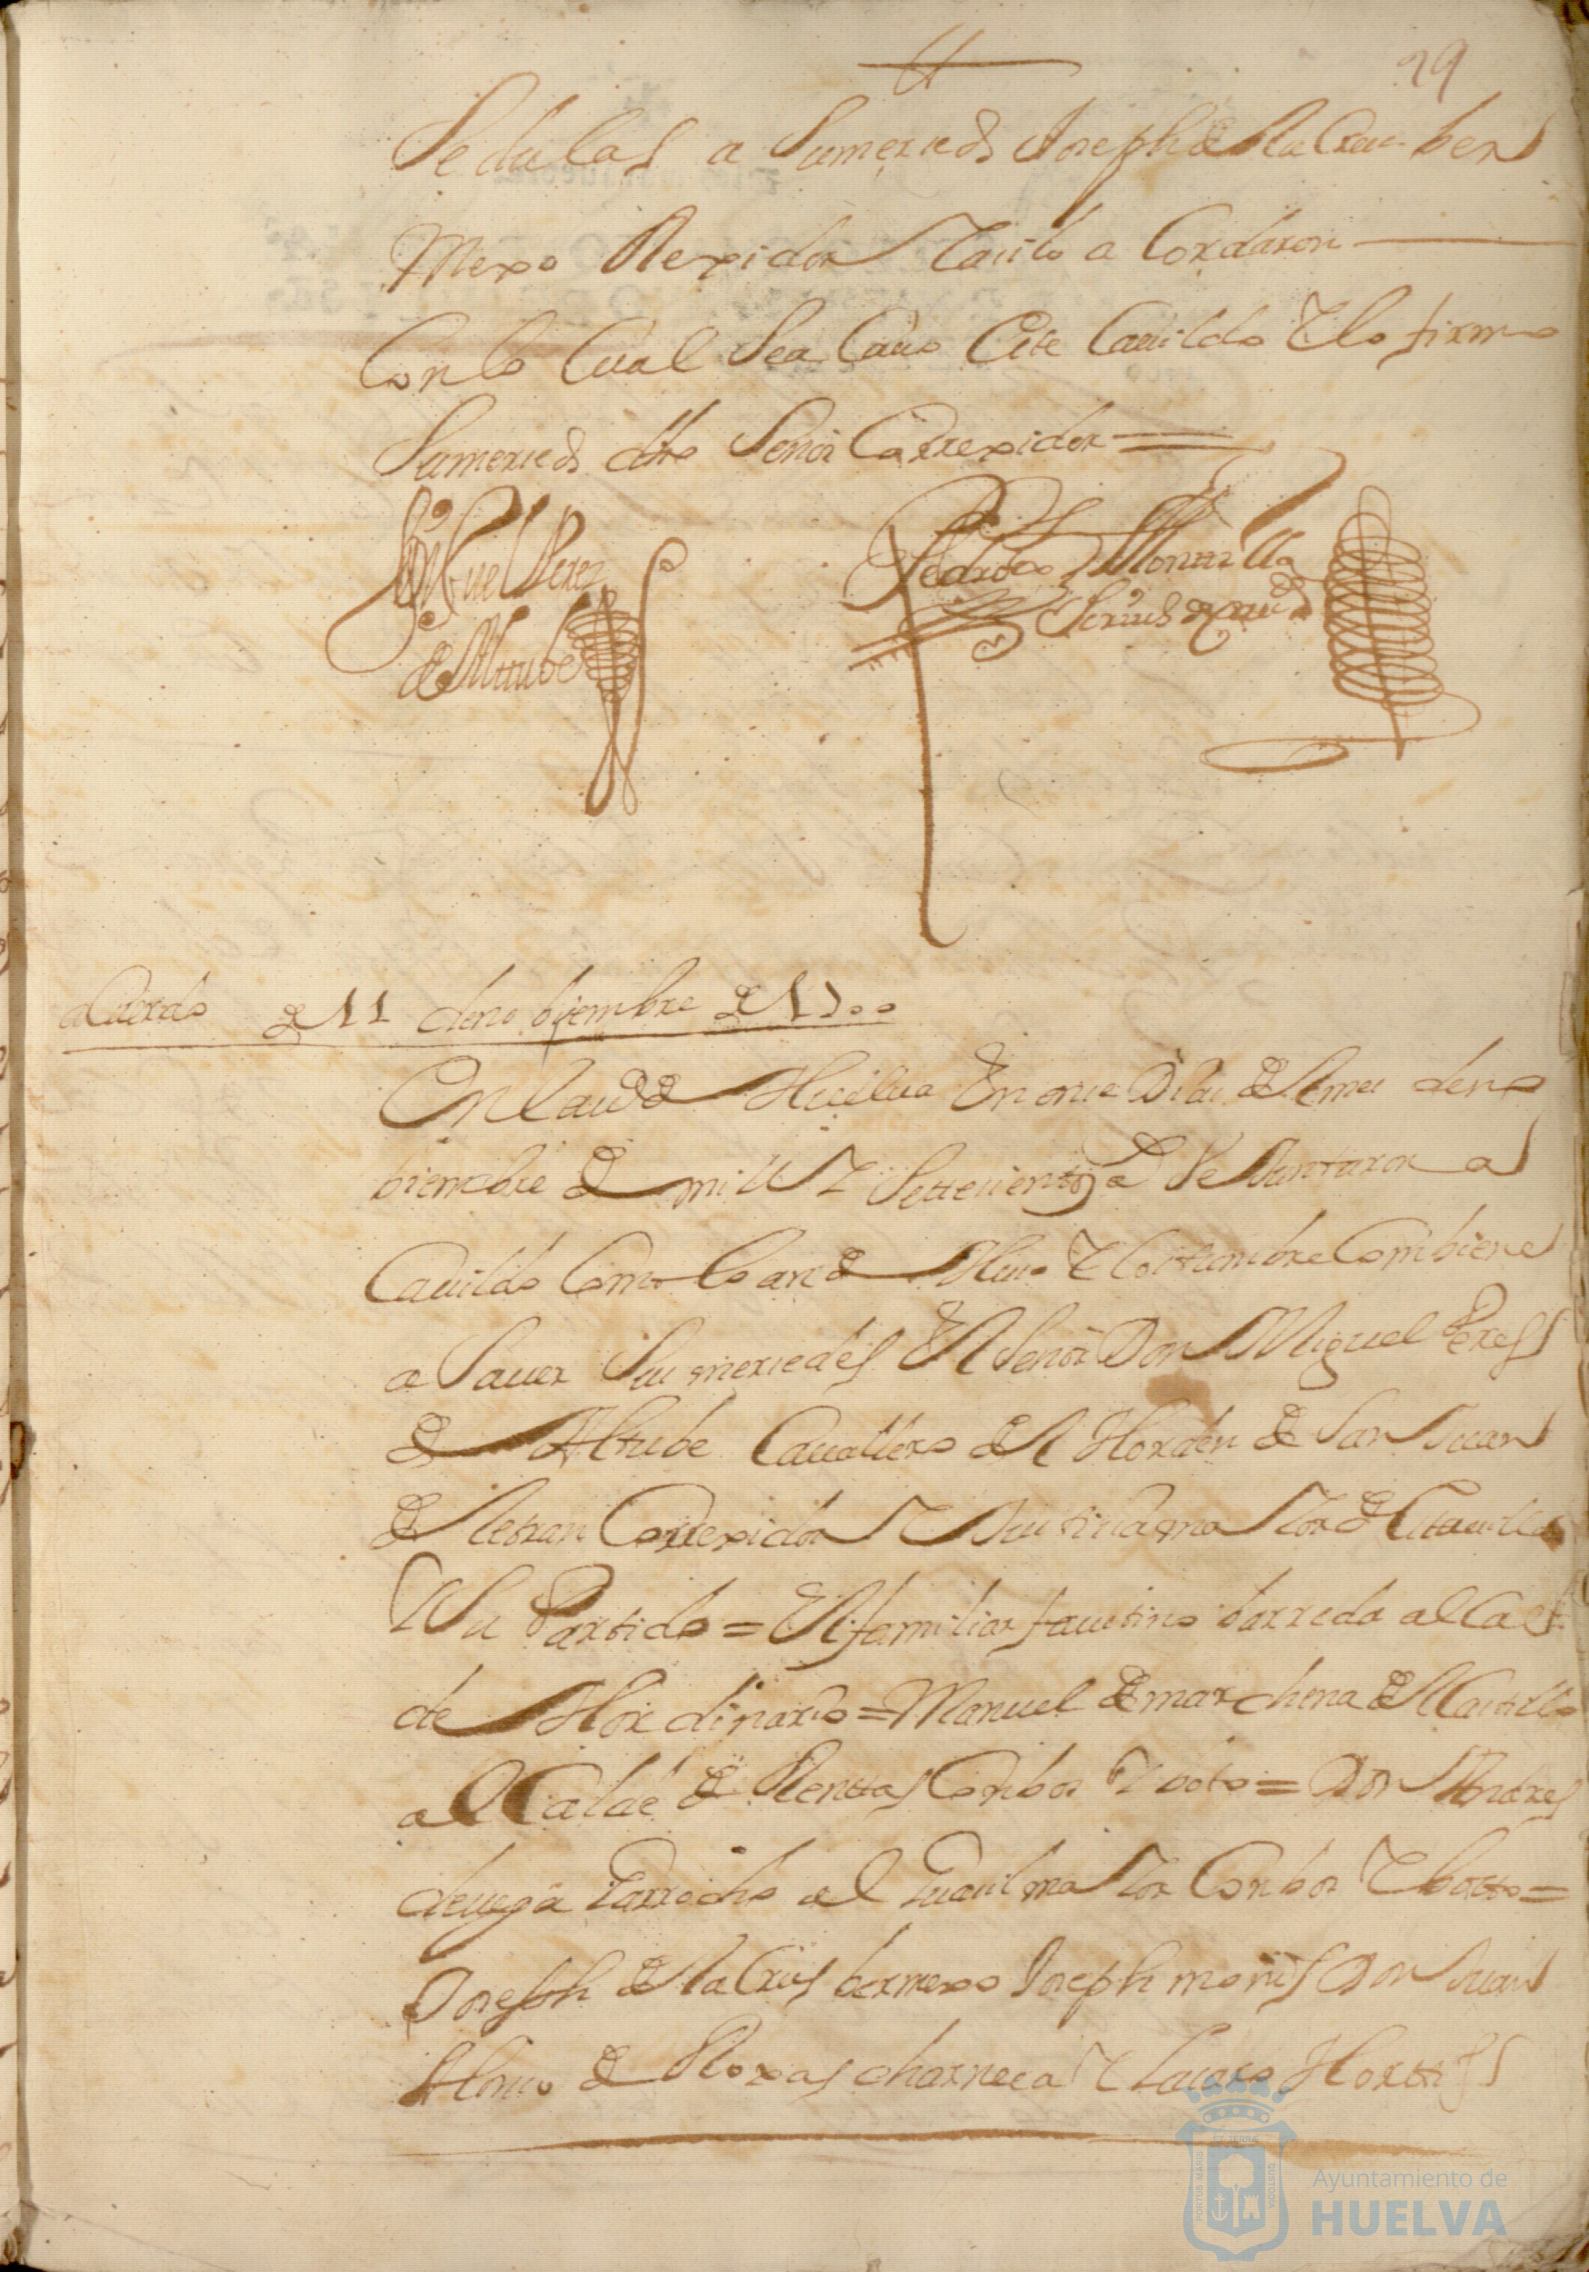 29
Sedulas a Sumersed Joseph de la Crus ber
mexo Rexidor Y aciló a Cordaron
Con lo Cual Sea Cavo Este Cavildo Y lo firmo
Sumersed dho Señor Correxidor
Miguel Perez
de Alttube
Pedro Montilla
Scrivno de Cavdo
aCuerdo de 11 de nobiembre de 1700
En la Vª de Huelva En onse Dias del mes de no
biembre de mill Y Settecientos as Se Juntaron a
Cavildo Como lo an de Huso Y Costumbre Combiene
a Saver Sus mersedes El Señor Don Miguel Peres
de Alttube Cavallero del Horden de San Juan
de Letran Correxidor Y Justicia maYor de Esta villa
Y Su Partido = El familiar faustino barreda al Cal
de Hordinario = Manuel de marchena del Castillo
al Calde de Renttas Con bos Y voto = Don Andres
de vega Garrocho al Guasil maYor Con bos Y botto =
Joseph de la Crus bermexo Joseph monis Don Juan
Alonso de Roxas charneca Y Lasaro Horttis
PORTUS MARIS
ET TERRAE
CUSTODIA
Ayuntamiento de
HUELVA